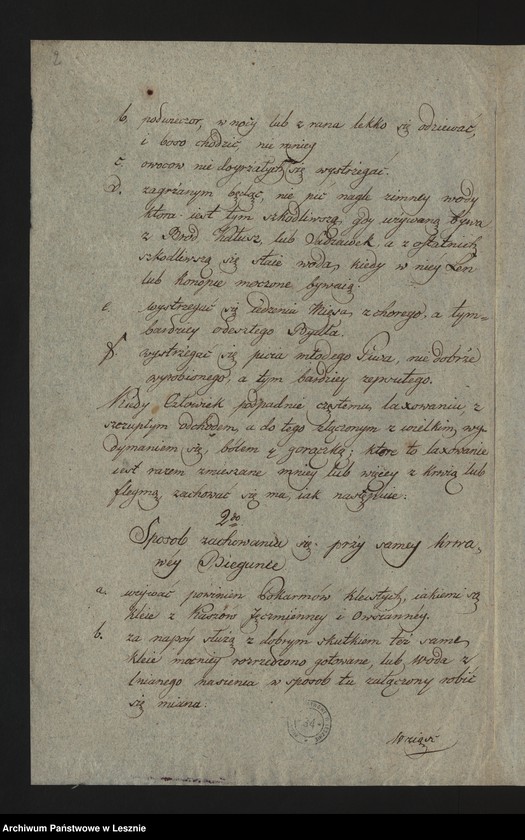 2
b. podwieczor, w nocy lub z rana lekko się odziewać,
i boso chodzić, nie mniey
c. owocow niedoyrzałych się wystrzegać.
d. zagrzanym będąc, nie pić nagle zimney wody
ktora iest tym szkodliwszą, gdy używaną bywa
z Brod Kałusz, lub Sadzawek, a z ostatnich
szkodliwszą się staie woda, kiedy w niey Len
lub konopie moczone bywaią.
e. wystrzegać się iedzenia Mięsa z chorego, a tym=
bardziey odeszłego Bydła.
f. wystrzegać się picia młodego Piwa, nie dobrze
wyrobionego, a tym bardziey zepsutego.
Kiedy Człowiek podpadnie częstemu laxowaniu, z
szczupłym Odchodem, a do tego złączonym z wielkim wy,
dymaniem się, bolem y gorączką; ktore to laxowanie
iest razem zmieszane mniey lub więcey z krwią lub
flegmą, zachować się ma, iak następuie:
2do
Sposob zachowania się przy samey krwa,
wéy Biegunce
a. używać powinien Pokarmów kleistych, iakiemi są
kleie z Kaszów Jęczmienney i Owsianney.
b. za napoy służą z dobrym skutkiem też same
kleie mocniey rozrzedzono gotowane, lub Woda z
lnianego nasienia w sposob tu załączony robić
się miana.
Wziąść
Archiwum Państwowe w Lesznie